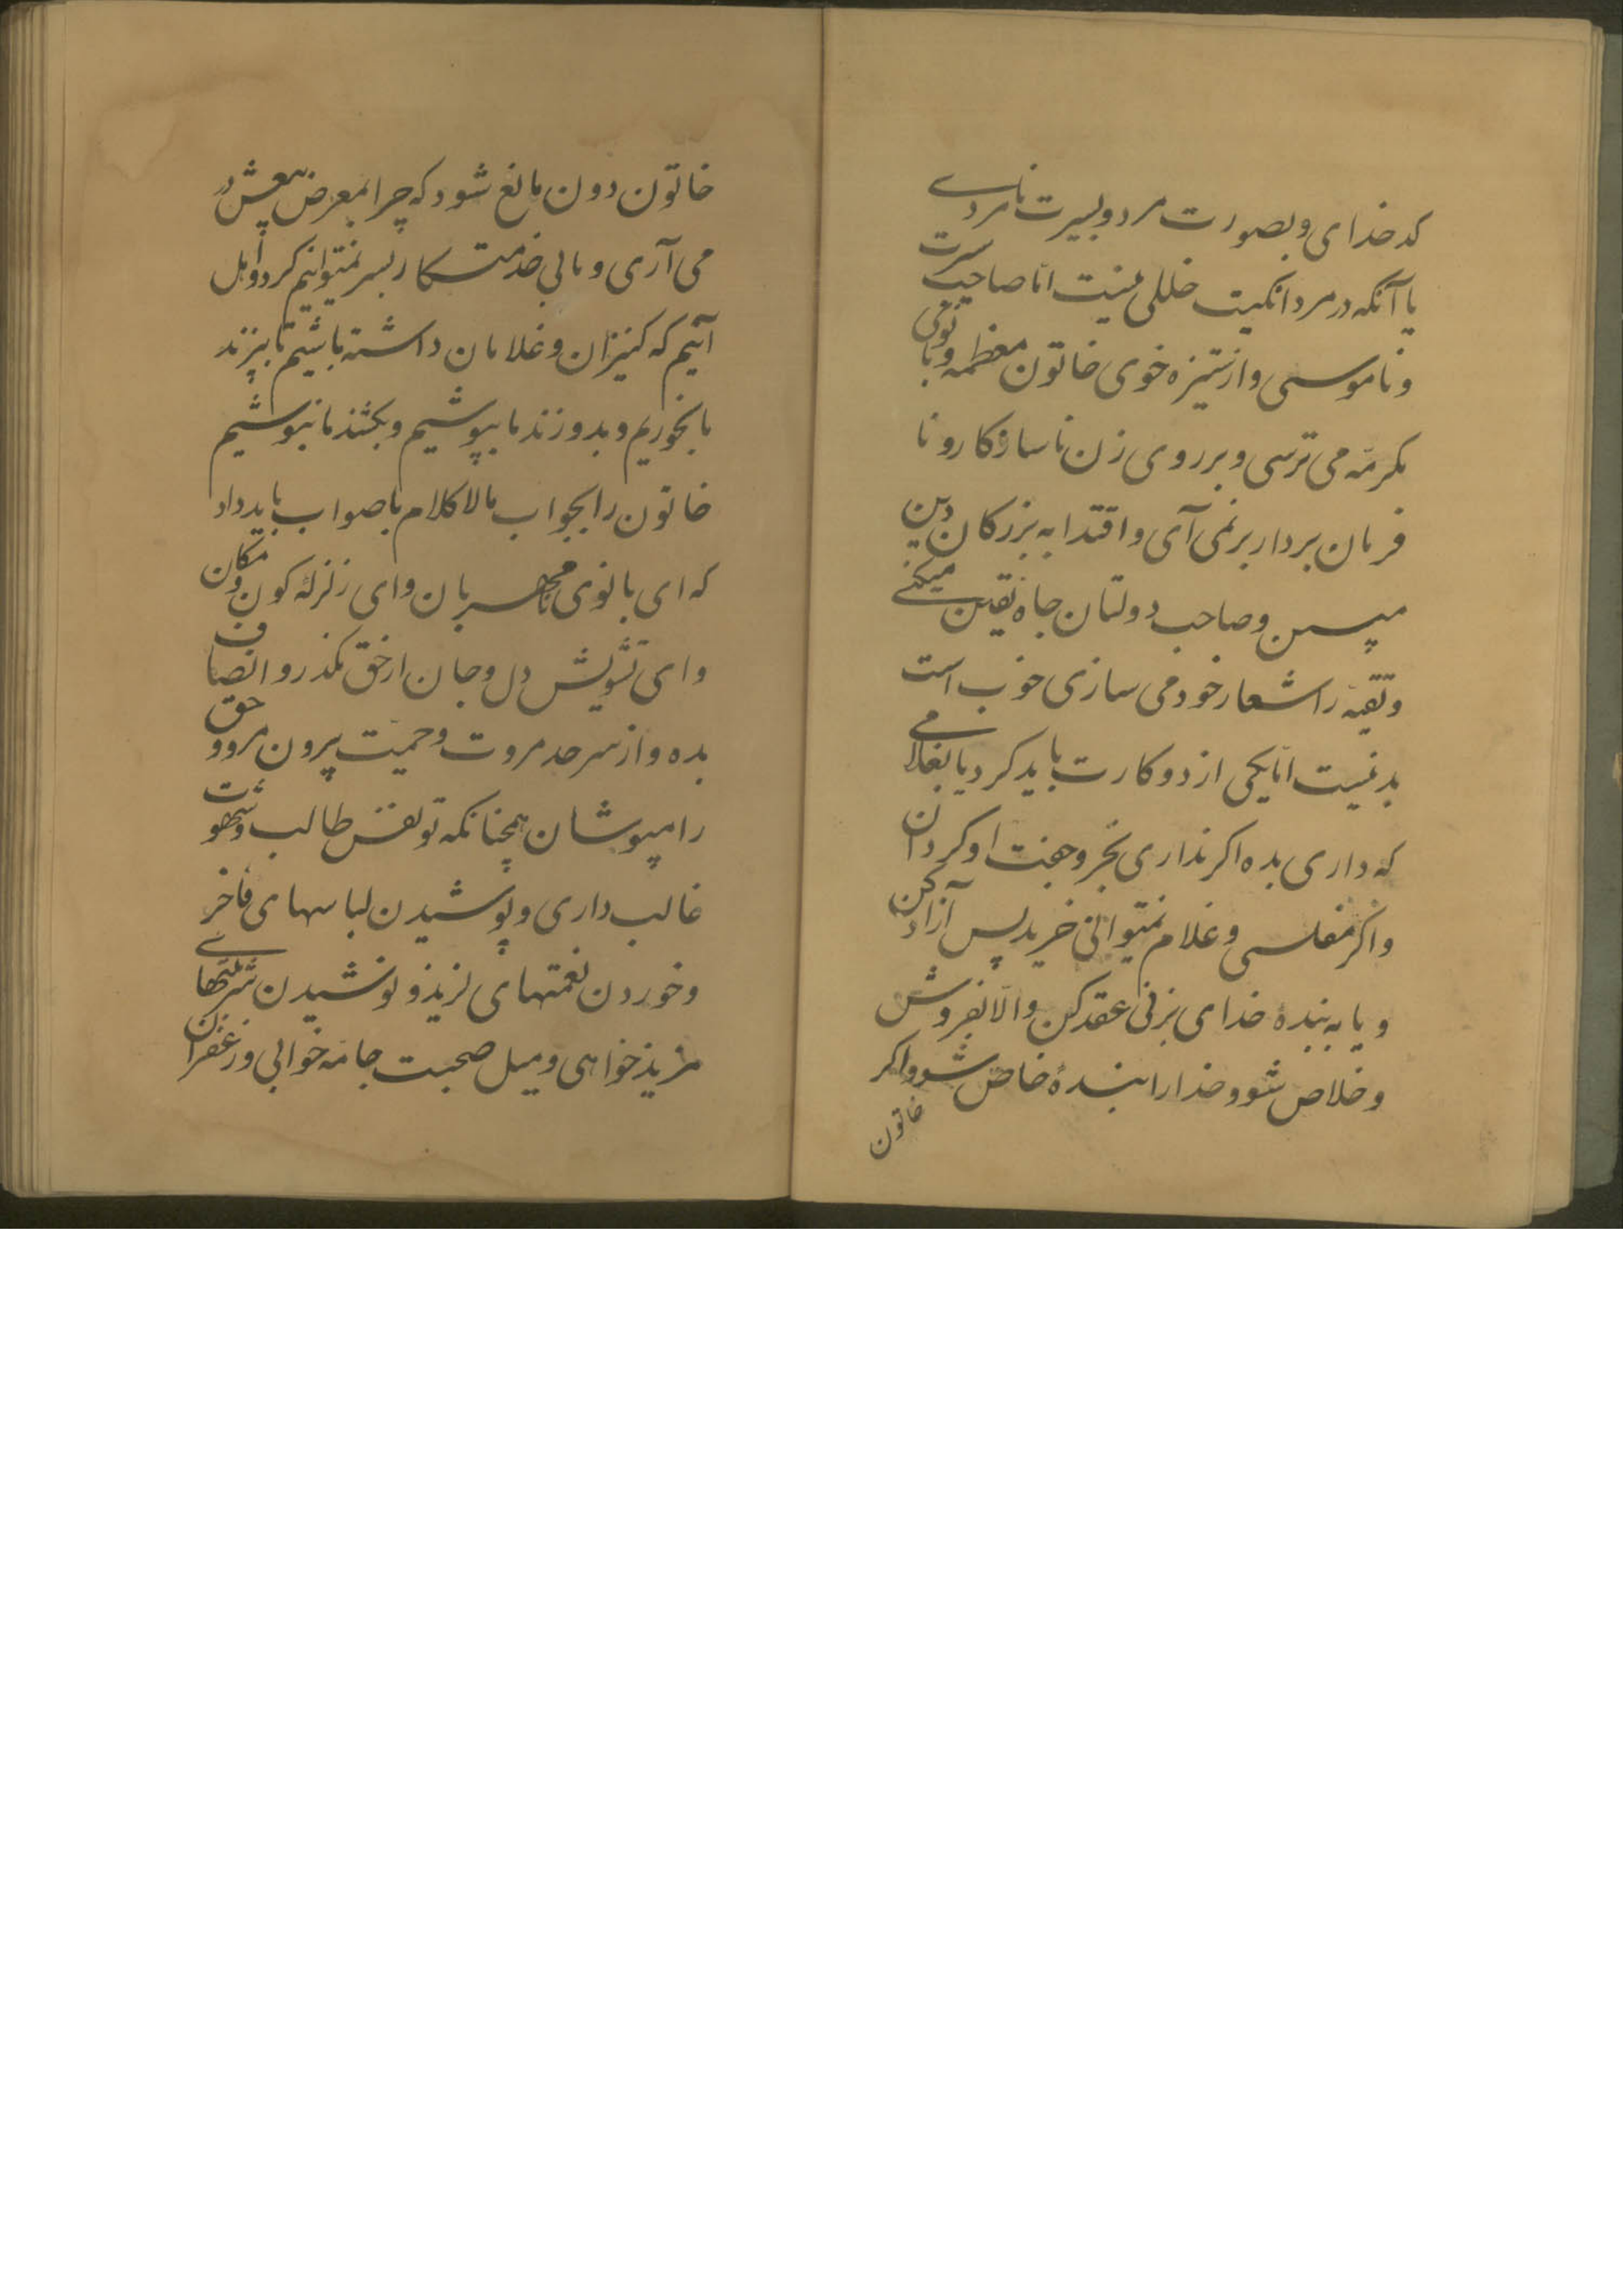 کدخدای و بصورت مرد و بسیرت نامردے
یا آنکه در مردانگیت خللی نیست امّا صاحب سرت
و ناموسی و از ستیزه خوی خاتون معظمه و بانوی
مکرمّه می ترسی و بر روی زن ناسازکار و نا
فرمان بردار برنمی آی و اقتدا به بزرکان دین
مبین و صاحب دولتان جاه یقین میکنے
و تقیّه را شعار خود می سازی خوب است
بد نیست امّا یکی از دو کارت باید کرد یا بغلامے
که داری بده اکر نداری بخر و جفت او کردان
و اکر مفلسی و غلام نمیتوانی خرید پس آزاد کن
و یا به بندهٔ خدای بزنی عقد کن والّا بفروش
و خلاص شو و خدا را بندهٔ خاص شو و اکر
خاتون
خاتون دون مانع شود که چرا بمعرض بیعش در
می آری و ما بی خدمتکار بسر نمیتوانیم کرد و اهل
آنیم که کنیزان و غلامان داشته باشیم تا بپزند
ما بخوریم و بدوزند ما بپوشیم و بکشند ما بنوشیم
خاتون را بجواب مالاکلام باصواب باید داد
که ای بانوی نامهربان و ای زلزلهٔ کون و مکان
و ای تشویش دل و جان از حق مکذر و انصاف
بده و از سرحد مروت و حمیّت بیرون مرو و حق
را مپوشان همچنانکه تو نفس طالب و شهوت
غالب داری و پوشیدن لباسهای فاخر
و خوردن نعمتهای لزیذ و نوشیدن شربتهاے
مزیذ خواهی و میل صحبت جامه خوابی و زعفران